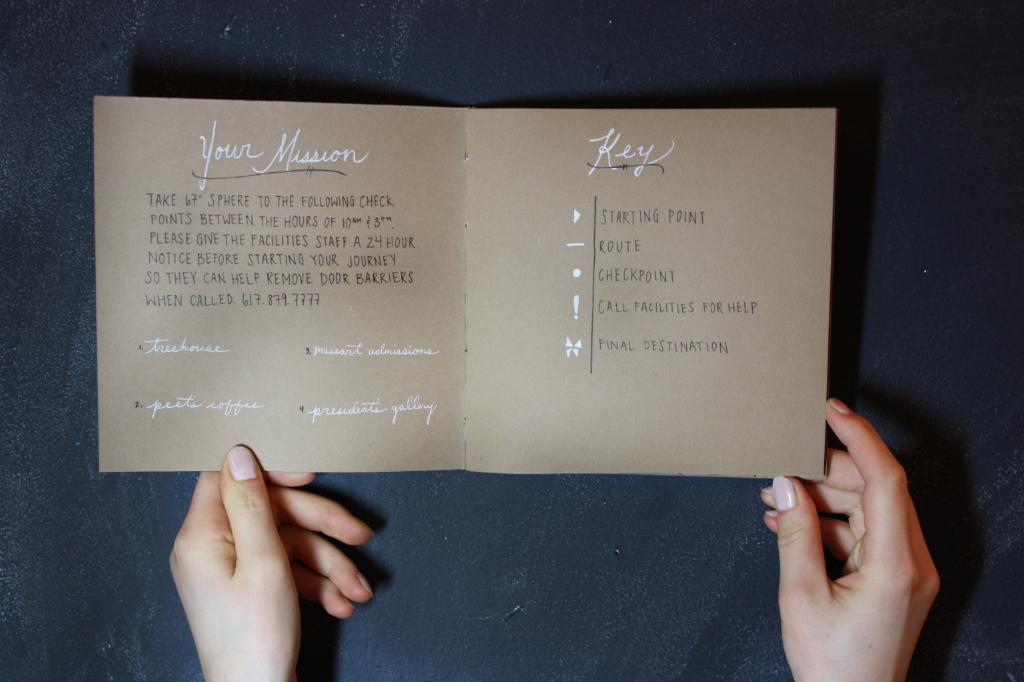 Your Mission
TAKE 67" SPHERE TO THE FOLLOWING CHECK
POINTS BETWEEN THE HOURS OF 10AM & 3PM.
PLEASE GIVE THE FACILITIES STAFF A 24 HOUR
NOTICE BEFORE STARTING YOUR JOURNEY
SO THEY CAN HELP REMOVE DOOR BARRIERS
WHEN CALLED. 617.879.7777
1. treehouse
2. peets coffee
3. massart admissions
4. president's gallery
Key
STARTING POINT
ROUTE
CHECKPOINT
! CALL FACILITIES FOR HELP
FINAL DESTINATION